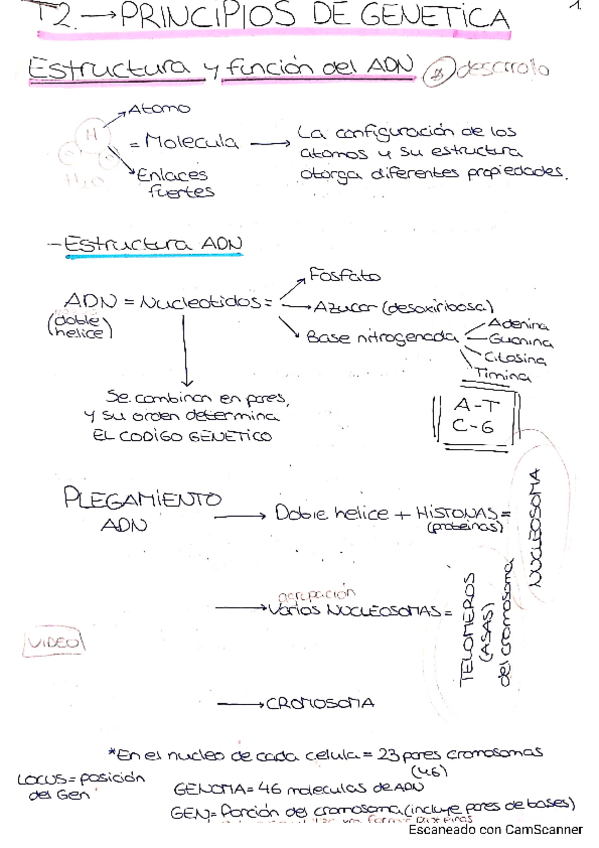 T2.→PRINCIPIOS DE GENETICA
1.
Estructura y función del ADN
desarrollo
Atomo
H
= Molecula → La configuración de los
atomos y su estructura
otorga diferentes propiedades.
Enlaces
fuertes
H2O
-Estructura ADN
Fosfato
ADN = Nucleotidos = → Azucar (desoxiribosa)
(doble
helice)
Base nitrogenada
Adenina
Guanina
Citosina
Timina
Se combinan en pares,
y su orden determina
EL CODIGO GENETICO
A-T
C-G
PLEGAMIENTO
ADN
→ Doble helice + HISTONAS =
(proteinas)
NUCLEOSOMA
agrupación
→ Varios NUCLEOSOMAS =
TELOMEROS
(ASAS)
del cromosoma
VIDEO
→ CROMOSOMA
*En el nucleo de cada celula = 23 pares cromosomas
(46)
LOCUS = posición
del Gen
GENOMA = 46 moleculas de ADN
GEN = Porción del cromosoma (incluye pares de bases)
Escaneado con CamScanner